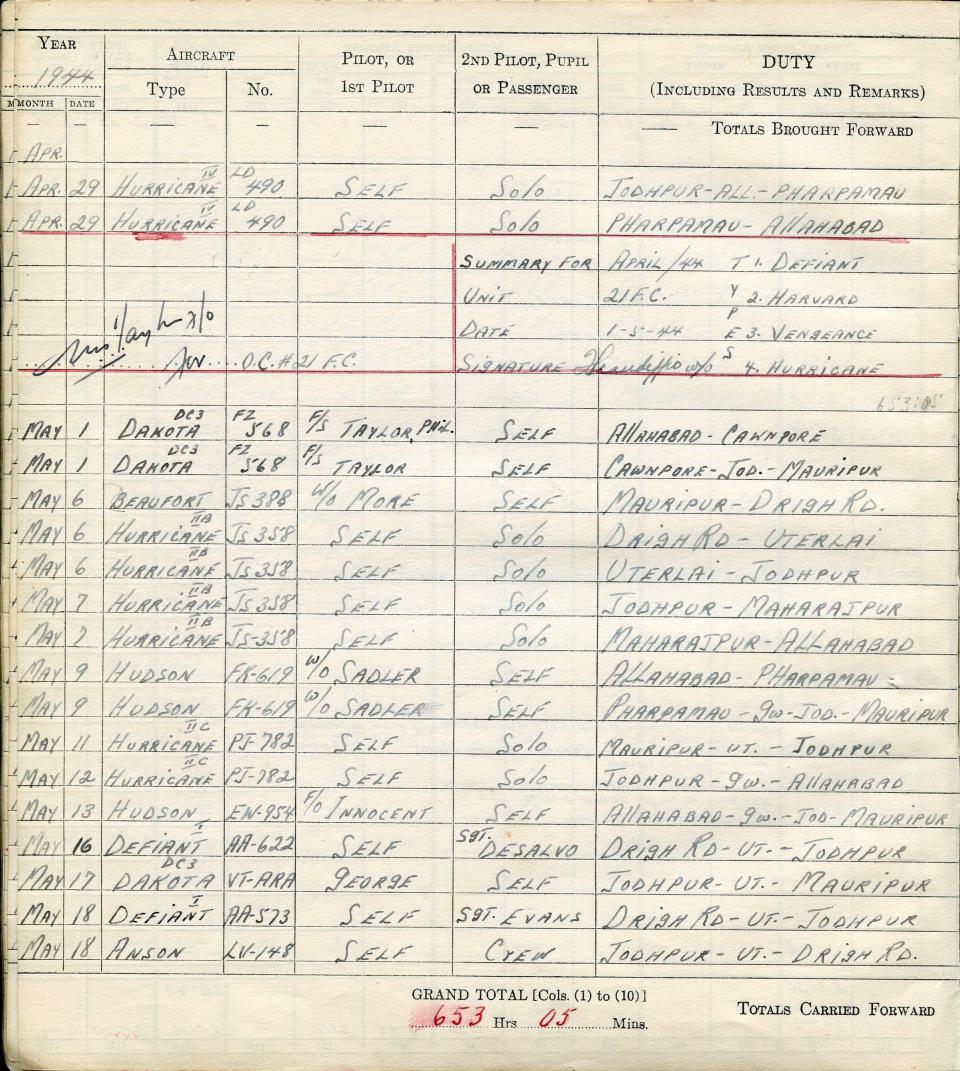 YEAR AIRCRAFT PILOT, OR 2ND PILOT, PUPIL DUTY
1944 Type No. 1ST PILOT OR PASSENGER (INCLUDING RESULTS AND REMARKS)
MONTH DATE
— — — — — — — TOTALS BROUGHT FORWARD
APR.
APR. 29 HURRICANE IV LD 490 SELF Solo JODHPUR-ALL-PHARPAMAU
APR. 29 HURRICANE IV LD 490 SELF Solo PHARPAMAU-ALLAHABAD
SUMMARY FOR APRIL/44 TYPES 1. DEFIANT
UNIT 21 F.C. 2. HARVARD
DATE 1-5-44 3. VENGEANCE
for O.C. #21 F.C. SIGNATURE W/O 4. HURRICANE
653:05
MAY 1 DAKOTA DC3 FZ 568 F/S TAYLOR, PHIL. SELF AllAHABAD-CAWNPORE
MAY 1 DAKOTA DC3 FZ 568 F/S TAYLOR SELF CAWNPORE-JOD.-MAURIPUR
MAY 6 BEAUFORT JS 388 W/O MORE SELF MAURIPUR-DRIGH RD.
MAY 6 HURRICANE IIB JS 358 SELF Solo DRIGH RD-UTERLAI
MAY 6 HURRICANE IIB JS 358 SELF Solo UTERLAI-JODHPUR
MAY 7 HURRICANE IIB JS 358 SELF Solo JODHPUR-MAHARAJPUR
MAY 7 HURRICANE IIB JS-358 SELF Solo MAHARAJPUR-ALLAHABAD
MAY 9 HUDSON FK-619 W/O SADLER SELF ALLAHABAD-PHARPAMAU
MAY 9 HUDSON FK-619 W/O SADLER SELF PHARPAMAU-gw-JOD.-MAURIPUR
MAY 11 HURRICANE IIC PJ-782 SELF Solo MAURIPUR-UT.-JODHPUR
MAY 12 HURRICANE IIC PJ-782 SELF Solo JODHPUR-gw.-AllAHABAD
MAY 13 HUDSON EW-954 F/O INNOCENT SELF AllAHABAD-gw.-JOD-MAURIPUR
MAY 16 DEFIANT I AA-622 SELF SGT. DESALVO DRIGH RD-UT.-JODHPUR
MAY 17 DAKOTA DC3 VT-ARA GEORGE SELF JODHPUR-UT.-MAURIPUR
MAY 18 DEFIANT I AA-573 SELF SGT. EVANS DRIGH RD-UT.-JODHPUR
MAY 18 ANSON LV-148 SELF CREW JODHPUR-UT.-DRIGH RD.
GRAND TOTAL [Cols. (1) to (10)] TOTALS CARRIED FORWARD
653 Hrs 05 Mins.